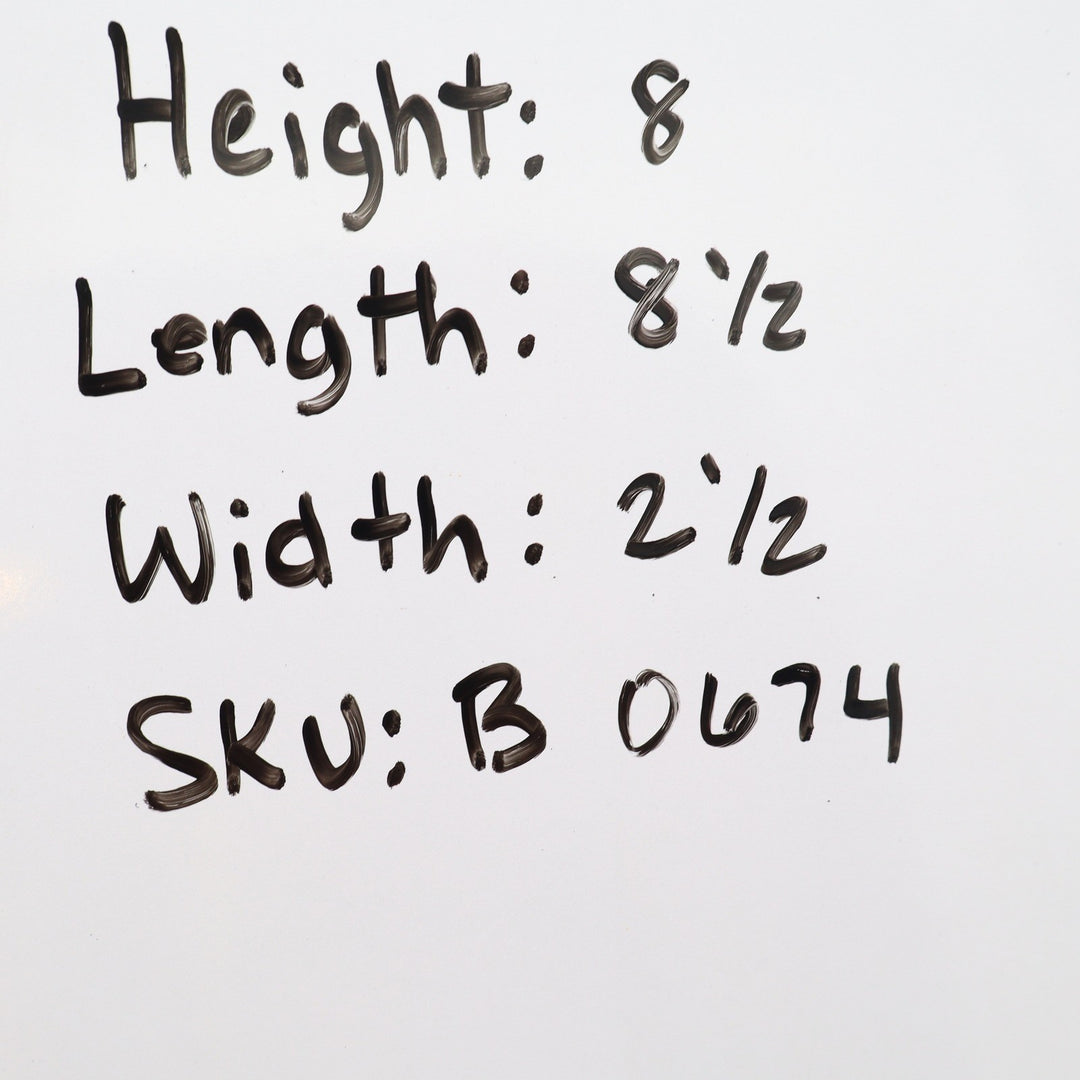 Height: 8
Length: 8 1/2
Width: 2 1/2
SKU: B 0674